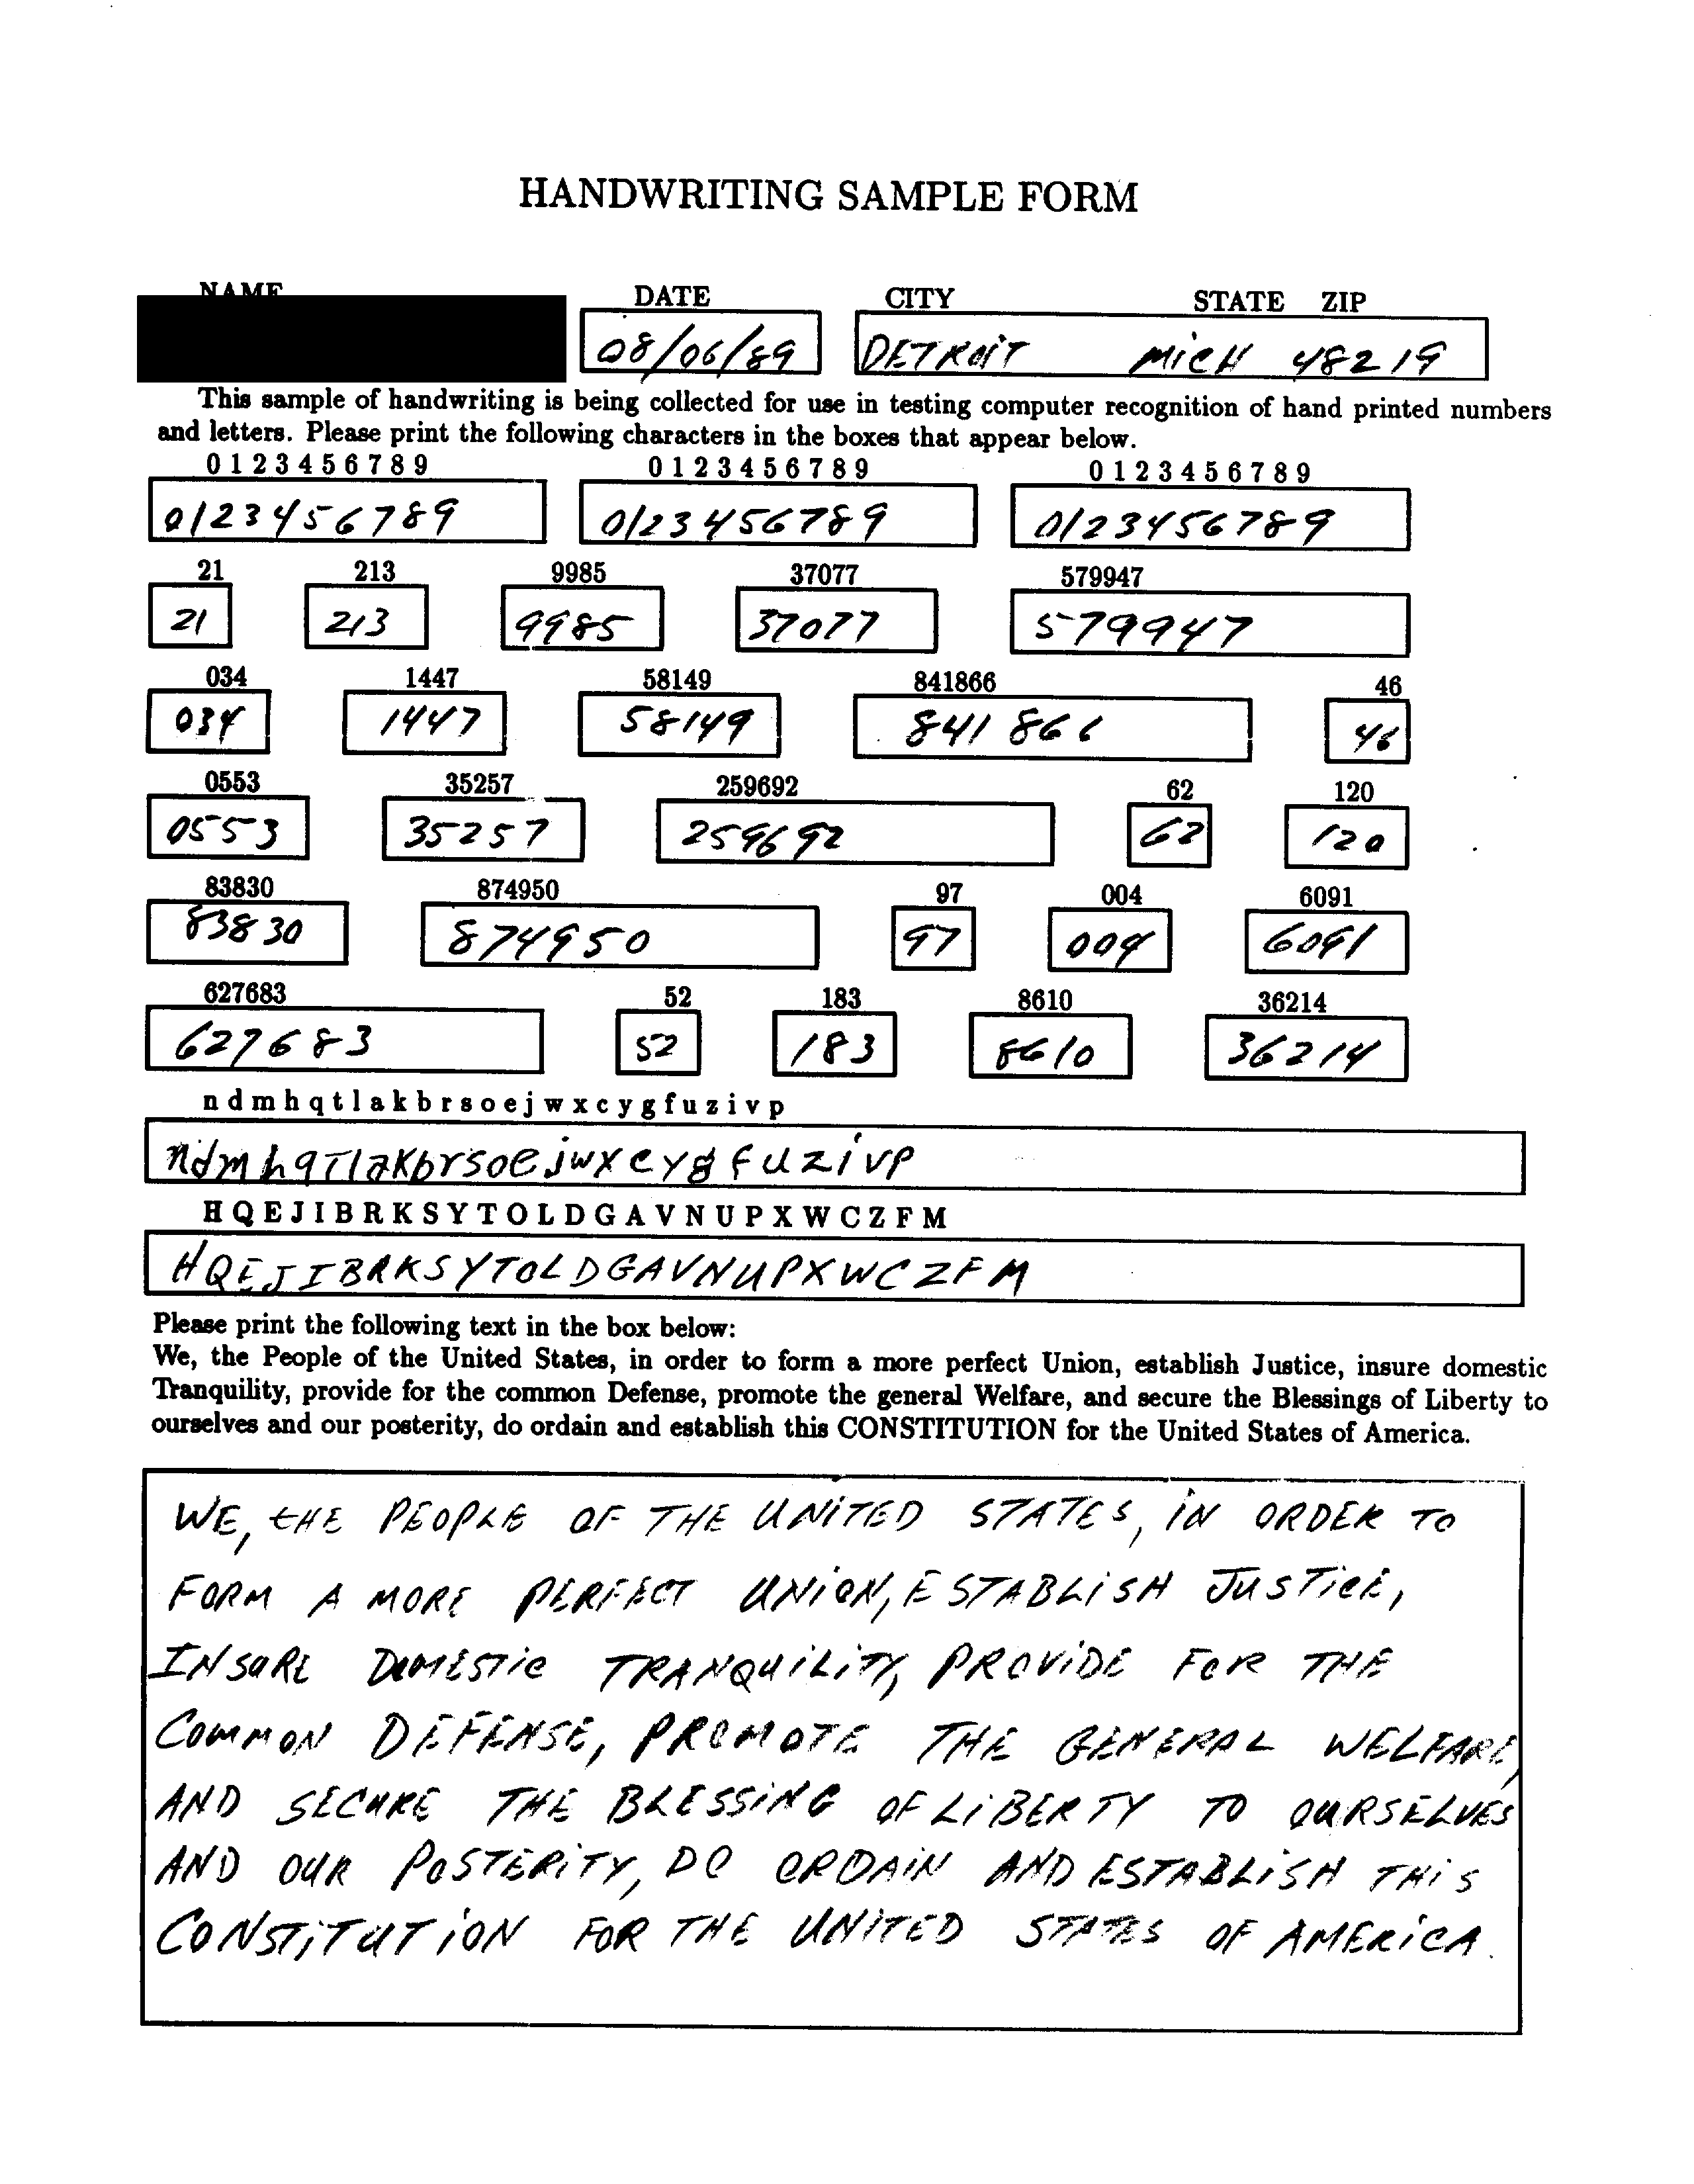 HANDWRITING SAMPLE FORM
NAME DATE CITY STATE ZIP
08/06/89 DETROIT MICH 48219
This sample of handwriting is being collected for use in testing computer recognition of hand printed numbers
and letters. Please print the following characters in the boxes that appear below.
0 1 2 3 4 5 6 7 8 9 0 1 2 3 4 5 6 7 8 9 0 1 2 3 4 5 6 7 8 9
0123456789 0123456789 0123456789
21 213 9985 37077 579947
21 213 9985 37077 579947
034 1447 58149 841866 46
034 1447 58149 841866 46
0553 35257 259692 62 120
0553 35257 259692 62 120
83830 874950 97 004 6091
83830 874950 97 004 6091
627683 52 183 8610 36214
627683 52 183 8610 36214
n d m h q t l a k b r s o e j w x c y g f u z i v p
ndmhqTlaKbrsoejwxcygfuzivp
H Q E J I B R K S Y T O L D G A V N U P X W C Z F M
HQEJIBRKSYTOLDGAVNUPXWCZFM
Please print the following text in the box below:
We, the People of the United States, in order to form a more perfect Union, establish Justice, insure domestic
Tranquility, provide for the common Defense, promote the general Welfare, and secure the Blessings of Liberty to
ourselves and our posterity, do ordain and establish this CONSTITUTION for the United States of America.
WE, tHE PEOPLE OF THE UNiTED STATES, iN ORDER TO
FORM A MORE PERFECT UNiON, ESTABLiSH JUSTiCE,
INSURE DOMESTiC TRANQUiLiTY, PROViDE FOR THE
COMMON DEFENSE, PROMOTE THE GENERAL WELFARE,
AND SECURE THE BLESSiNG OF LiBERTY TO OURSELVES
AND OUR POSTERiTY, DO ORDAiN AND ESTABLiSH THiS
CONSTiTUTiON FOR THE UNiTED STATES OF AMERiCA.